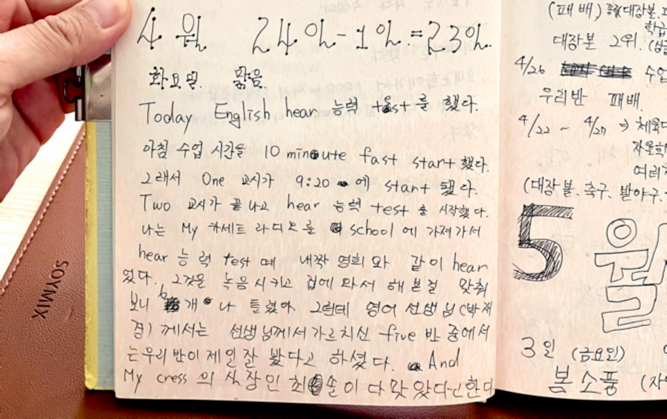 4월 24일-1일=23일
화요일 맑음
Today English hear 능력 test를 했다.
아침 수업 시간을 10 minute fast start 했다.
그래서 One 교시가 9:20에 start 됐다.
Two 교시가 끝나고 hear 능력 test을 시작했다.
나는 My 카세트 라디오를 school에 가져가서
hear 능력 test 때 내짝 영희와 같이 hear
었다. 그것은 녹음시키고 집에 와서 해본걸 맞춰
보니 개나 틀렸어 그런데 영어 선생님(박재
경)께서는 선생님께서 가르치신 five 반 중에서
는 우리반이 제일 잘 봤다고 하셨다. And
My cress의 최솔이 다 맞았다고한다
(패배)
대장볼 2위.
4/26 수업
우리반 패배.
4/22 ~ 4/27 →
(대장볼. 축구. 발야구.
5월
3일 (금요일)
봄소풍
SOYMIX